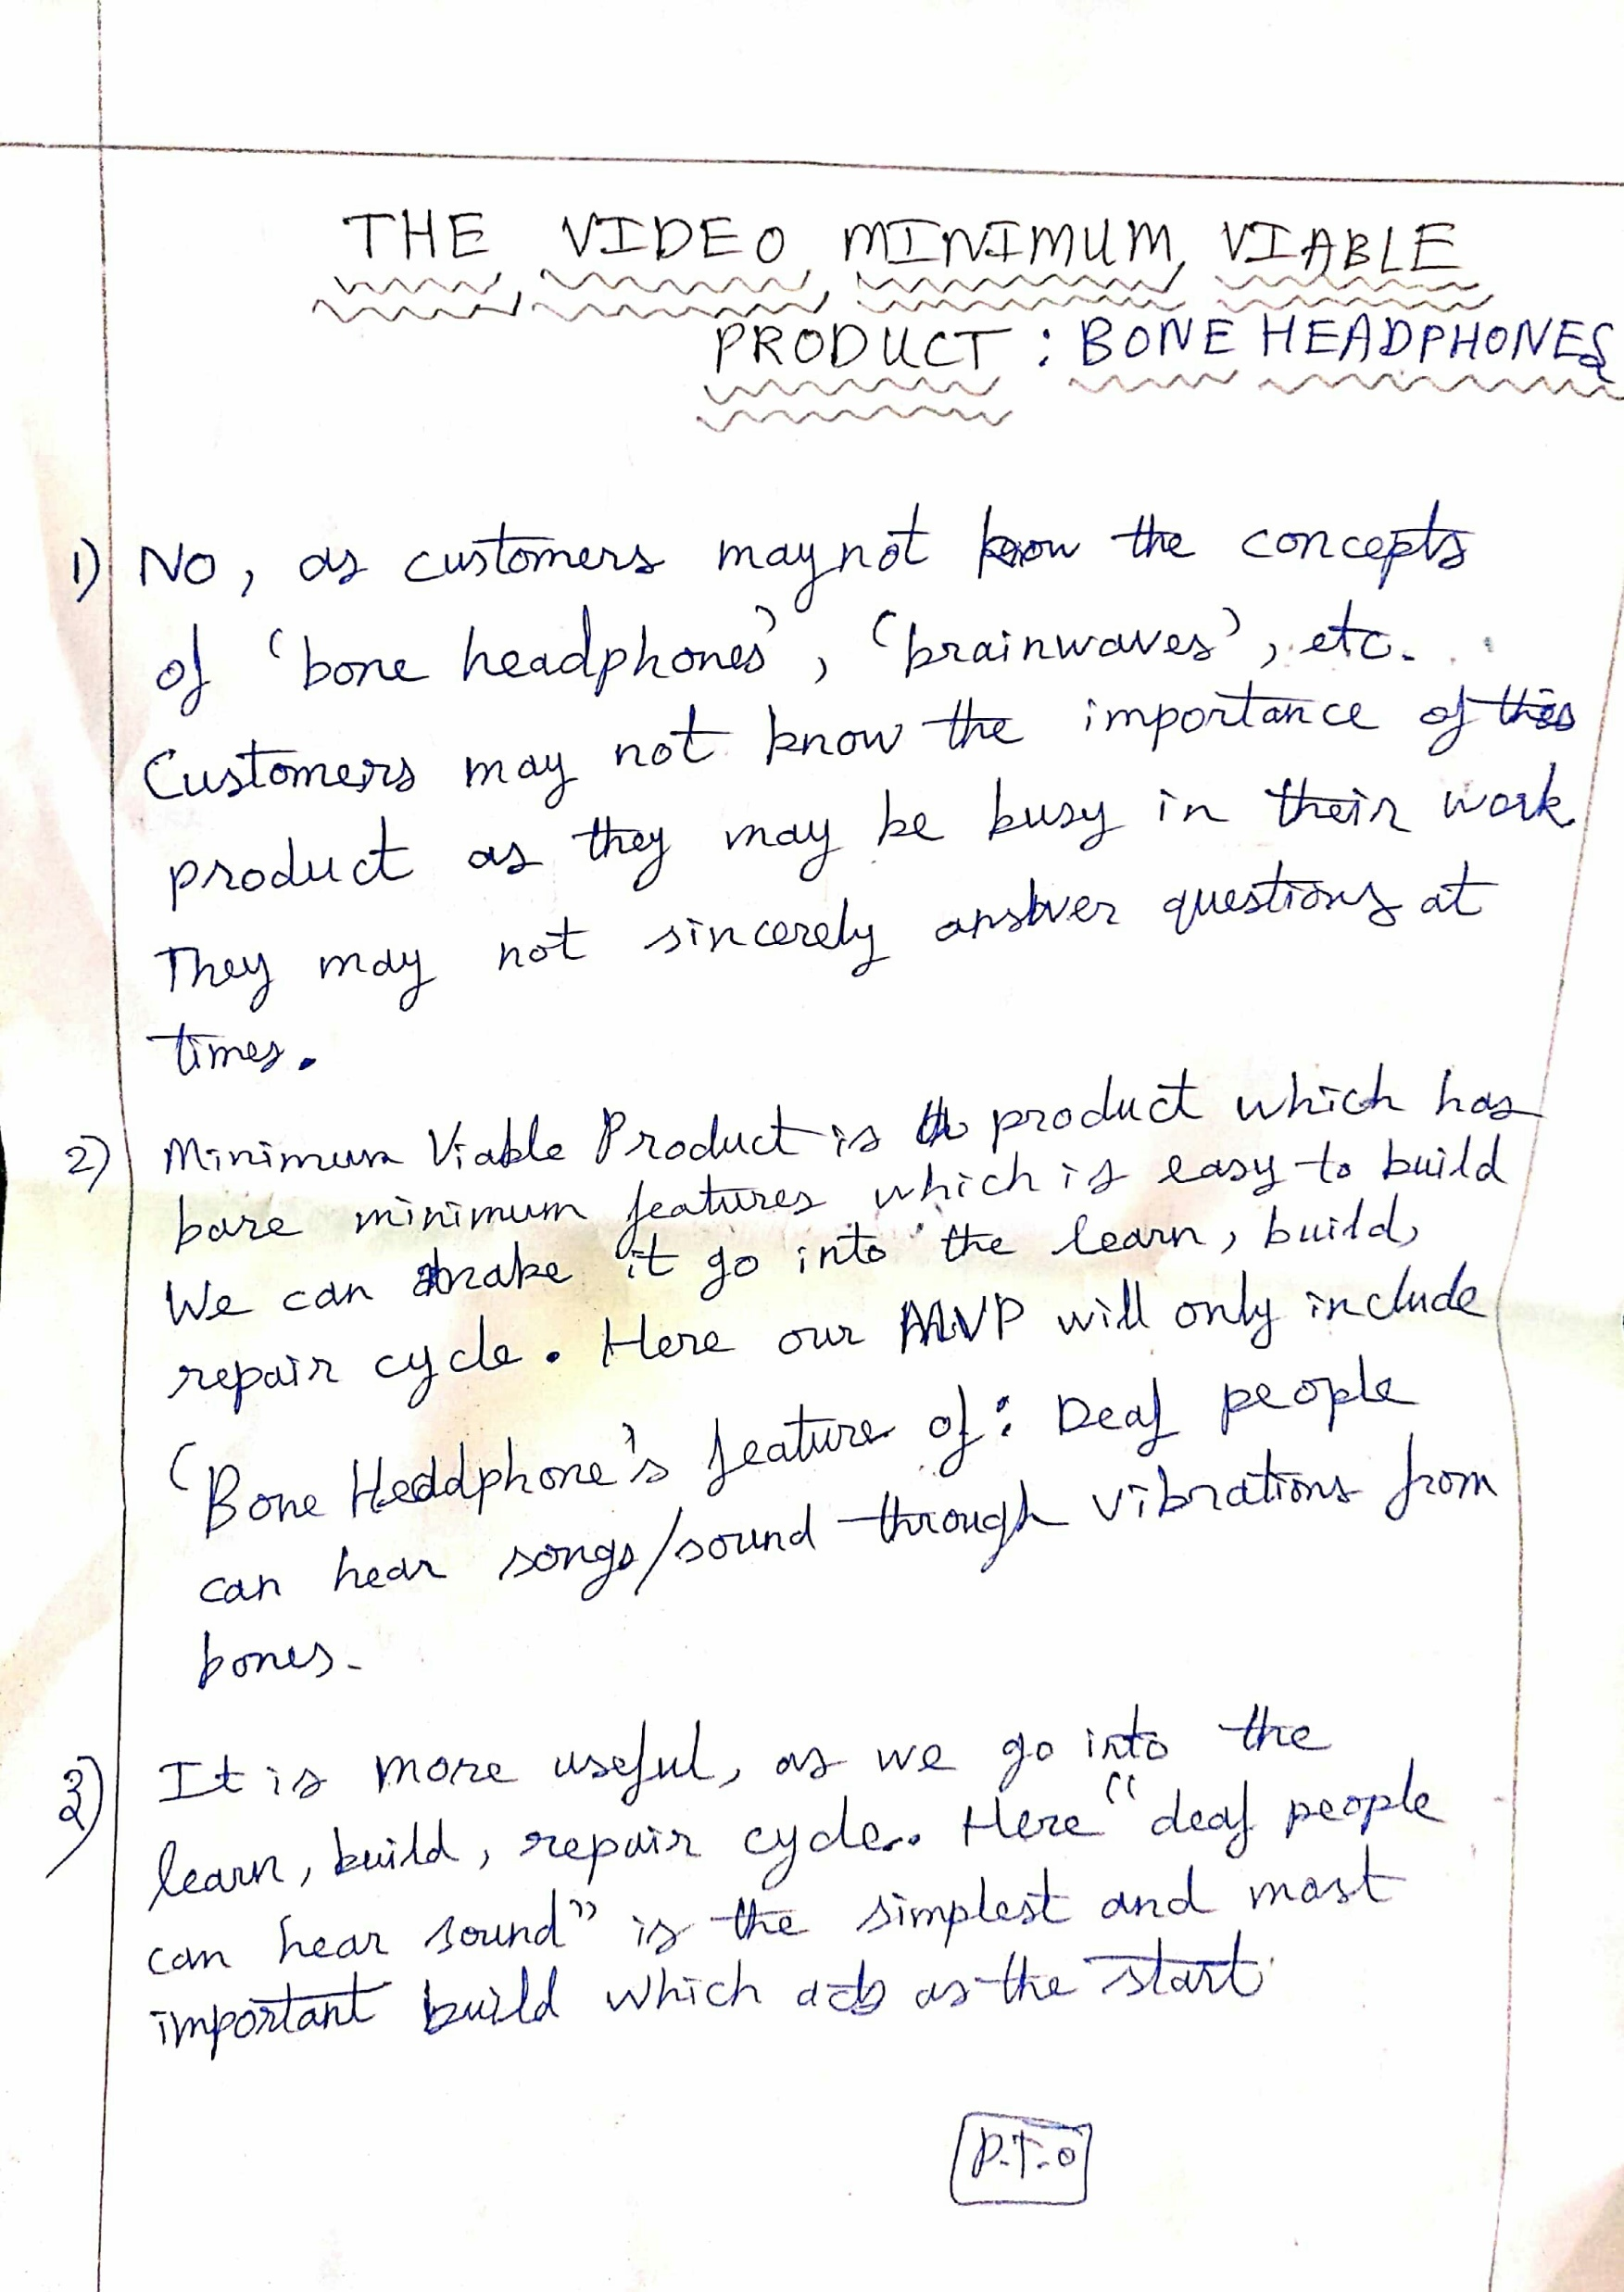 THE VIDEO MINIMUM VIABLE
PRODUCT : BONE HEADPHONES
1) No, as customers may not know the concepts
of 'bone headphones', 'brainwaves', etc.
Customers may not know the importance of this
product as they may be busy in their work
They may not sincerely answer questions at
times.
2) Minimum Viable Product is a product which has
bare minimum features which is easy to build
We can make it go into the learn, build,
repair cycle. Here our MVP will only include
'Bone Headphone's feature of: Deaf people
can hear songs/sound through vibrations from
bones.
3) It is more useful, as we go into the
learn, build, repair cycle. Here "deaf people
can hear sound" is the simplest and most
important build which acts as the start
P.T.O